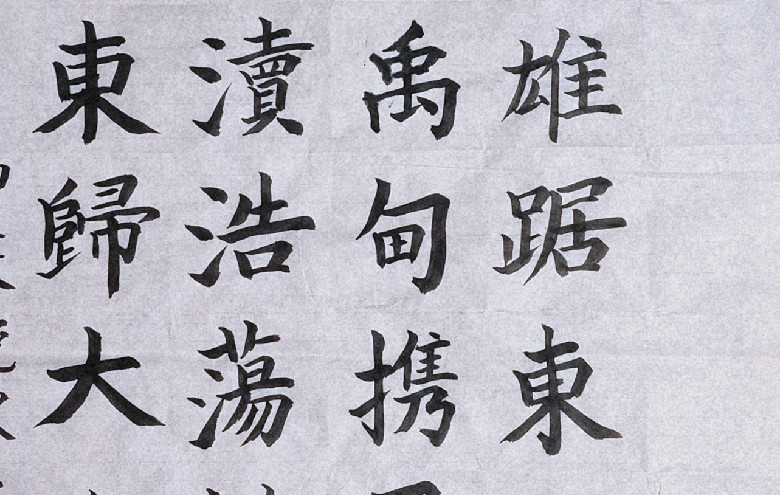 雄踞東
禹甸携
瀆浩蕩
東歸大